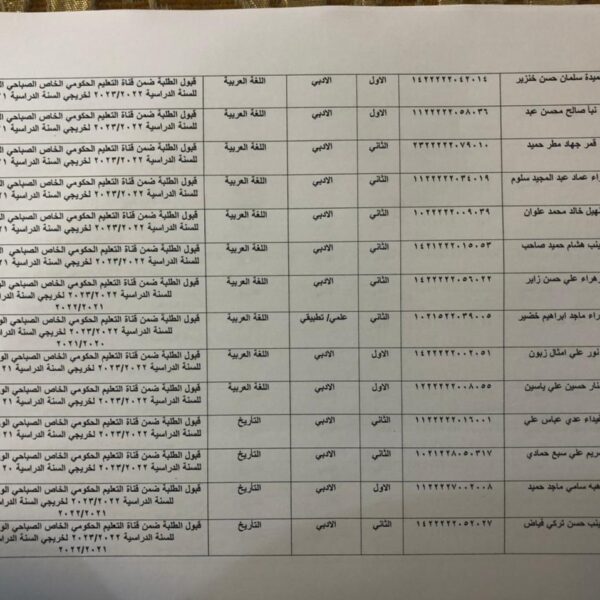 ميدة سلمان حسن خنزير ١٤٢٢٢٢٢٠٤٢٠١٤ الاول الادبي اللغة العربية قبول الطلبة ضمن قناة التعليم الحكومي الخاص الصباحي
للسنة الدراسية ٢٠٢٣/٢٠٢٢ لخريجي السنة الدراسية
نبأ صالح محسن عبد ١١٢٢٢٢٢٠٥٨٠٣٦ الاول الادبي اللغة العربية قبول الطلبة ضمن قناة التعليم الحكومي الخاص الصباحي
للسنة الدراسية ٢٠٢٣/٢٠٢٢ لخريجي السنة الدراسية
قمر جهاد مطر حميد ٢٣٢٢٢٢٢٠٧٩٠١٠ الثاني الادبي اللغة العربية قبول الطلبة ضمن قناة التعليم الحكومي الخاص الصباحي
للسنة الدراسية ٢٠٢٣/٢٠٢٢ لخريجي السنة الدراسية
راء عماد عبد المجيد سلوم ١١٢٢٢٢٢٠٣٤٠١٩ الثاني الادبي اللغة العربية قبول الطلبة ضمن قناة التعليم الحكومي الخاص الصباحي
للسنة الدراسية ٢٠٢٣/٢٠٢٢ لخريجي السنة الدراسية
هيل خالد محمد علوان ١٠٢٢٢٢٢٠٠٩٠٣٩ الثاني الادبي اللغة العربية قبول الطلبة ضمن قناة التعليم الحكومي الخاص الصباحي
للسنة الدراسية ٢٠٢٣/٢٠٢٢ لخريجي السنة الدراسية
ينب هشام حميد صاحب ١٤٢١٢٢٢٠١٥٠٥٣ الثاني الادبي اللغة العربية قبول الطلبة ضمن قناة التعليم الحكومي الخاص الصباحي
للسنة الدراسية ٢٠٢٣/٢٠٢٢ لخريجي السنة الدراسية
هراء علي حسن زاير ١٤٢٢٢٢٢٠٥٦٠٢٢ الثاني الادبي اللغة العربية قبول الطلبة ضمن قناة التعليم الحكومي الخاص الصباحي الو
للسنة الدراسية ٢٠٢٣/٢٠٢٢ لخريجي السنة الدراسية
٢٠٢٢/٢٠٢١
راء ماجد ابراهيم خضير ١٠٢١٥٢٢٠٣٩٠٠٥ الثاني علمي/ تطبيقي اللغة العربية قبول الطلبة ضمن قناة التعليم الحكومي الخاص الصباحي الو
للسنة الدراسية ٢٠٢٣/٢٠٢٢ لخريجي السنة الدراسية
٢٠٢١/٢٠٢٠
نور علي امثال زبون ١٤٢٢٢٢٢٠٠٢٠٥١ الاول الادبي اللغة العربية قبول الطلبة ضمن قناة التعليم الحكومي الخاص الصباحي الو
للسنة الدراسية ٢٠٢٣/٢٠٢٢ لخريجي السنة الدراسية
نار حسين علي ياسين ١٢٢٢٢٢٢٠٠٨٠٥٥ الاول الادبي اللغة العربية قبول الطلبة ضمن قناة التعليم الحكومي الخاص الصباحي الو
للسنة الدراسية ٢٠٢٣/٢٠٢٢ لخريجي السنة الدراسية
يداء عدي عباس علي ١١٢٢٢٢٢٠١٦٠٠١ الثاني الادبي التأريخ قبول الطلبة ضمن قناة التعليم الحكومي الخاص الصباحي الو
للسنة الدراسية ٢٠٢٣/٢٠٢٢ لخريجي السنة الدراسية
ريم علي سبع حمادي ١٠٢١٢٢٨٠٥٠٣١٧ الثاني الادبي التأريخ قبول الطلبة ضمن قناة التعليم الحكومي الخاص الصباحي الو
للسنة الدراسية ٢٠٢٣/٢٠٢٢ لخريجي السنة الدراسية
هبه سامي ماجد حميد ١١٢٢٢٢٧٠٠٢٠٠٨ الاول الادبي التأريخ قبول الطلبة ضمن قناة التعليم الحكومي الخاص الصباحي الو
للسنة الدراسية ٢٠٢٣/٢٠٢٢ لخريجي السنة الدراسية
٢٠٢٢/٢٠٢١
ينب حسن تركي فياض ١٤٢٢٢٢٢٠٥٢٠٢٧ الثاني الادبي التأريخ قبول الطلبة ضمن قناة التعليم الحكومي الخاص الصباحي الو
للسنة الدراسية ٢٠٢٣/٢٠٢٢ لخريجي السنة الدراسية
٢٠٢٢/٢٠٢١